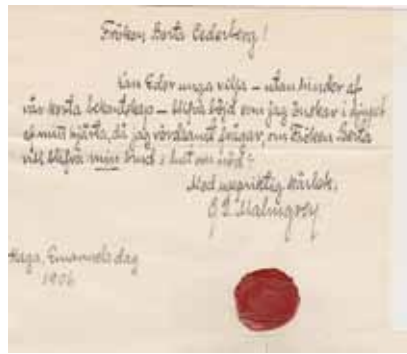 Fröken Berta Cederberg!
Kan Eder unga vilja – utan hinder af
vår korta bekantskap – blifva böjd som jag önskar i djupet
af mitt hjärta, då jag vördsamt frågar, om Fröken Berta
vill blifva min brud i lust och nöd?
Med uppriktig kärlek,
Malmgren
Haga, Emanuelsdag
1906